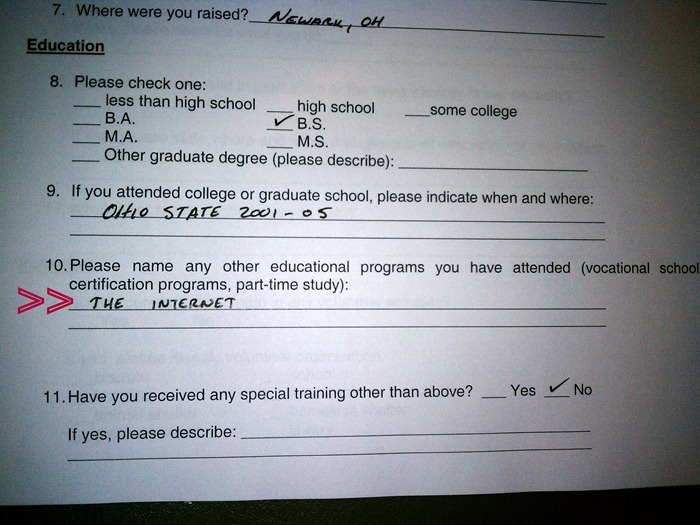 7. Where were you raised? NEWARK, OH
Education
8. Please check one:
___ less than high school ___ high school ___ some college
___ B.A. ✓ B.S.
___ M.A. ___ M.S.
___ Other graduate degree (please describe): ___
9. If you attended college or graduate school, please indicate when and where:
OHIO STATE 2001 - 05
10. Please name any other educational programs you have attended (vocational school
certification programs, part-time study):
>> THE INTERNET
11. Have you received any special training other than above? ___ Yes ✓ No
If yes, please describe: ___